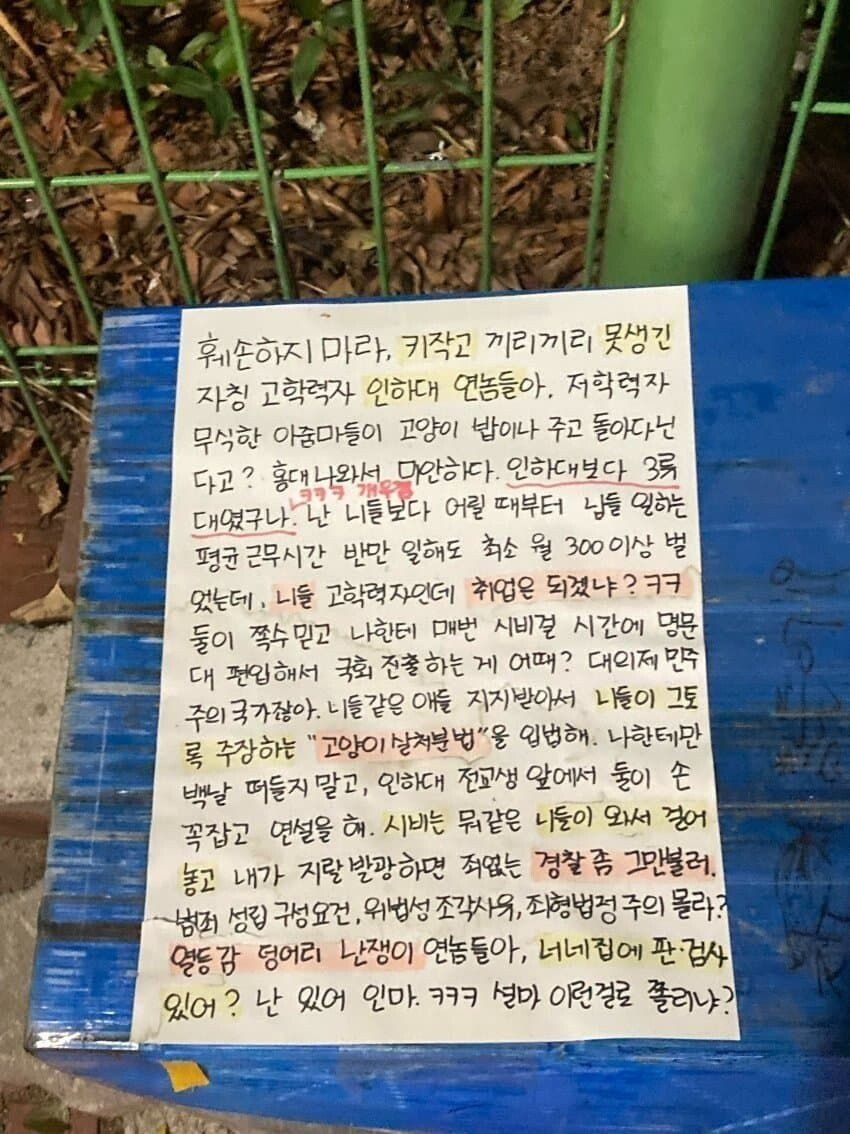 훼손하지 마라, 키작고 끼리끼리 못생긴
자칭 고학력자 인하대 연놈들아. 저학력자
무식한 아줌마들이 고양이 밥이나 주고 돌아다닌
다고? 홍대 나와서 미안하다. 인하대보다 3류
ㅋㅋㅋ 개웃겸
대였구나. 난 니들보다 어릴 때부터 닙들 일하는
평균 근무시간 반만 일해도 최소 월 300 이상 벌
었는데, 니들 고학력자인데 취업은 되겠냐? ㅋㅋ
둘이 쪽수 믿고 나한테 매번 시비걸 시간에 명문
대 편입해서 국회 진출하는 게 어때? 대의제 민주
주의 국가잖아. 니들같은 애들 지지받아서 니들이 그토
록 주장하는 "고양이 살처분법"을 입법해. 나한테만
백날 떠들지 말고, 인하대 전교생 앞에서 둘이 손
꼭잡고 연설을 해. 시비는 뭐같은 니들이 와서 걸어
놓고 내가 지랄발광하면 죄없는 경찰 좀 그만불러.
범죄 성립 구성요건, 위법성 조각사유, 죄형법정주의 몰라?
열등감 덩어리 난쟁이 연놈들아, 너네집에 판·검사
있어? 난 있어 인마. ㅋㅋㅋ 설마 이런걸로 쫄리냐?